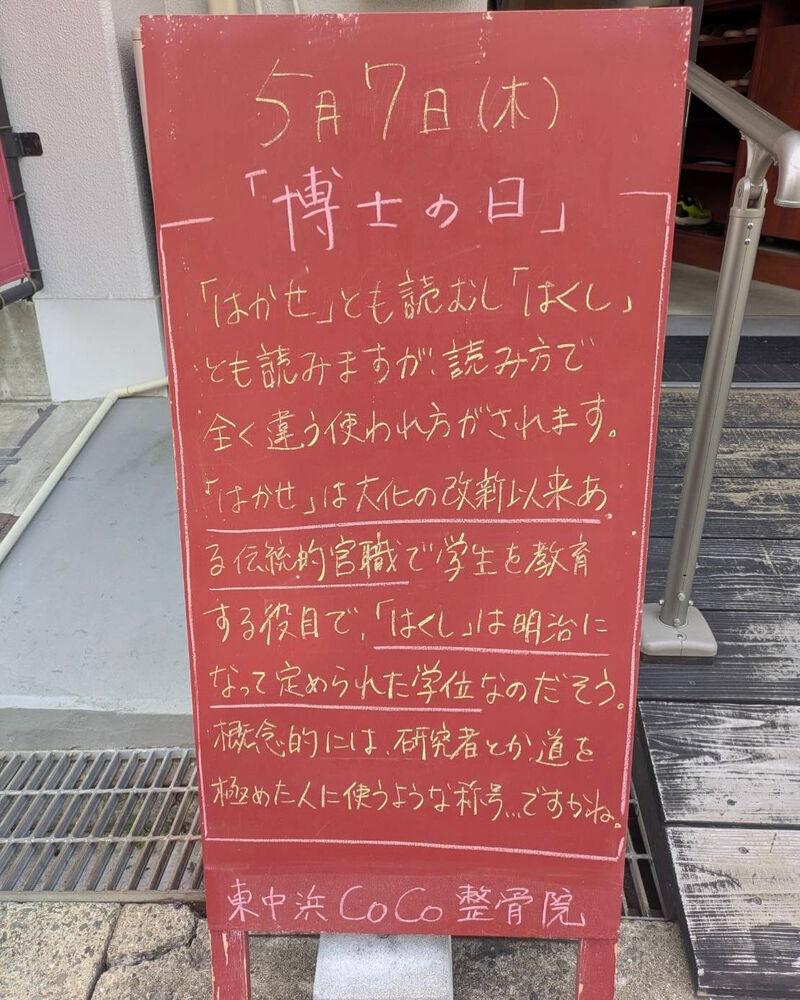 5月7日(木)
「博士の日」
「はかせ」とも読むし「はくし」
とも読みますが、読み方で
全く違う使われ方がされます。
「はかせ」は大化の改新以来あ
る伝統的官職で学生を教育
する役目で、「はくし」は明治に
なって定められた学位なのだそう。
概念的には、研究者とか、道を
極めた人に使うような称号...ですかね。
東中浜CoCo整骨院